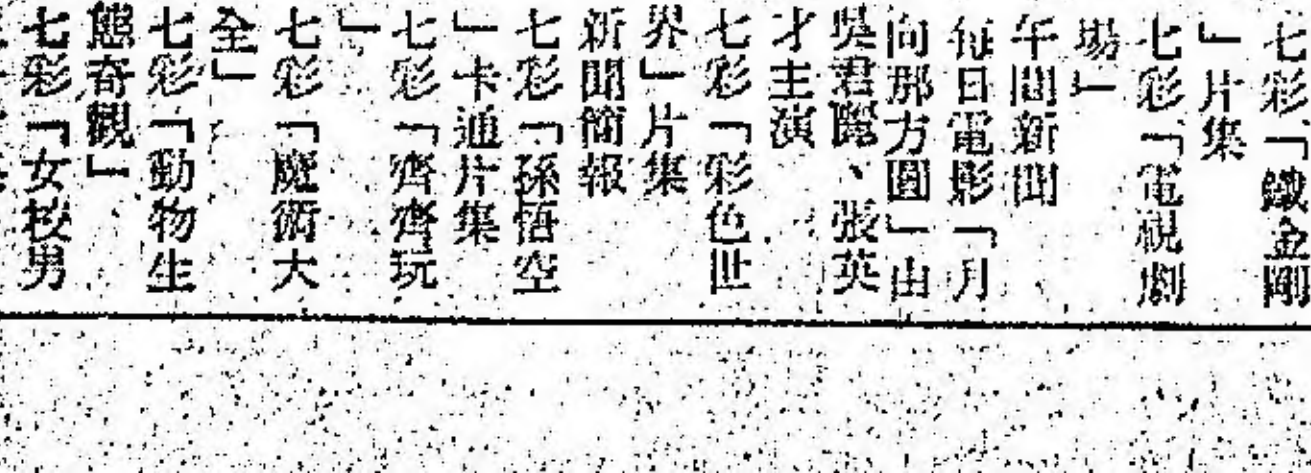 七彩「鐵金剛
」片集
七彩「電視劇
場」
午間新聞
每日電影「月
向那方圓」由
吳君麗、張英
才主演
七彩「彩色世
界」片集
新聞簡報
七彩「孫悟空
」卡通片集
七彩「齊齊玩
」
七彩「魔術大
全」
七彩「動物生
態奇觀」
七彩「女校男